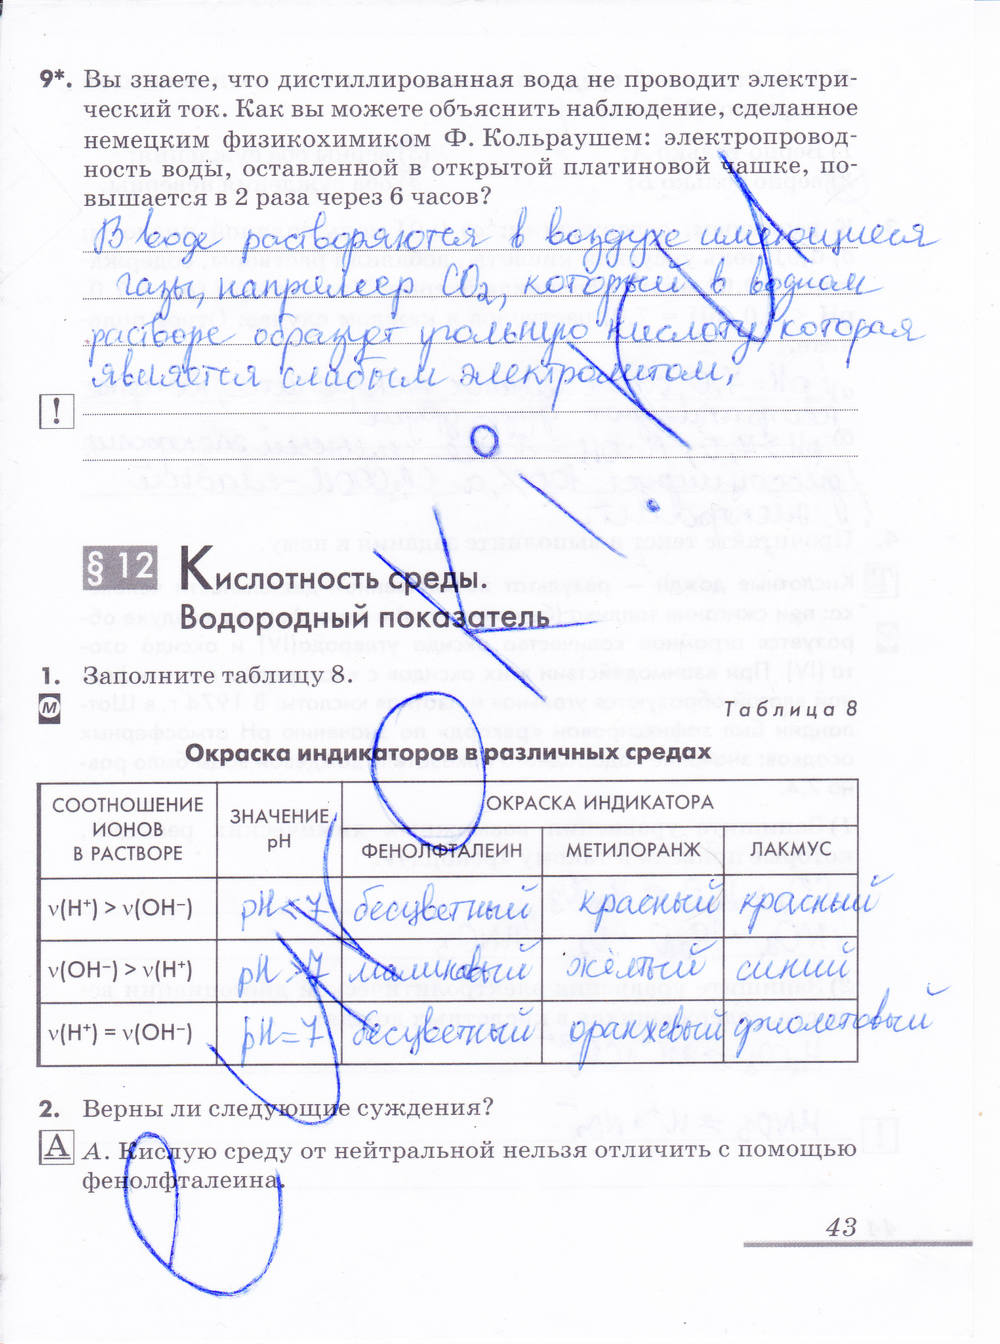 9*. Вы знаете, что дистиллированная вода не проводит электри-
ческий ток. Как вы можете объяснить наблюдение, сделанное
немецким физикохимиком Ф. Кольраушем: электропровод-
ность воды, оставленной в открытой платиновой чашке, по-
вышается в 2 раза через 6 часов?
В воде растворяются в воздухе имеющиеся
газы, например CO₂, который в водном
растворе образует угольную кислоту, которая
является слабым электролитом.
!
§ 12 Кислотность среды.
Водородный показатель
1. Заполните таблицу 8.
М
Таблица 8
Окраска индикаторов в различных средах
СООТНОШЕНИЕ ИОНОВ В РАСТВОРЕ
ЗНАЧЕНИЕ pH
ОКРАСКА ИНДИКАТОРА
ФЕНОЛФТАЛЕИН МЕТИЛОРАНЖ ЛАКМУС
ν(H⁺) > ν(OH⁻) pH < 7 бесцветный красный красный
ν(OH⁻) > ν(H⁺) pH > 7 малиновый жёлтый синий
ν(H⁺) = ν(OH⁻) pH = 7 бесцветный оранжевый фиолетовый
2. Верны ли следующие суждения?
А
А. Кислую среду от нейтральной нельзя отличить с помощью
фенолфталеина.
43